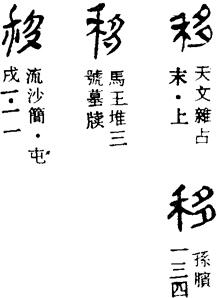 移
天文雜占
末·上
移
孫臏
一三四
移
馬王堆三
號墓牘
移
流沙簡·屯
戍一·一一